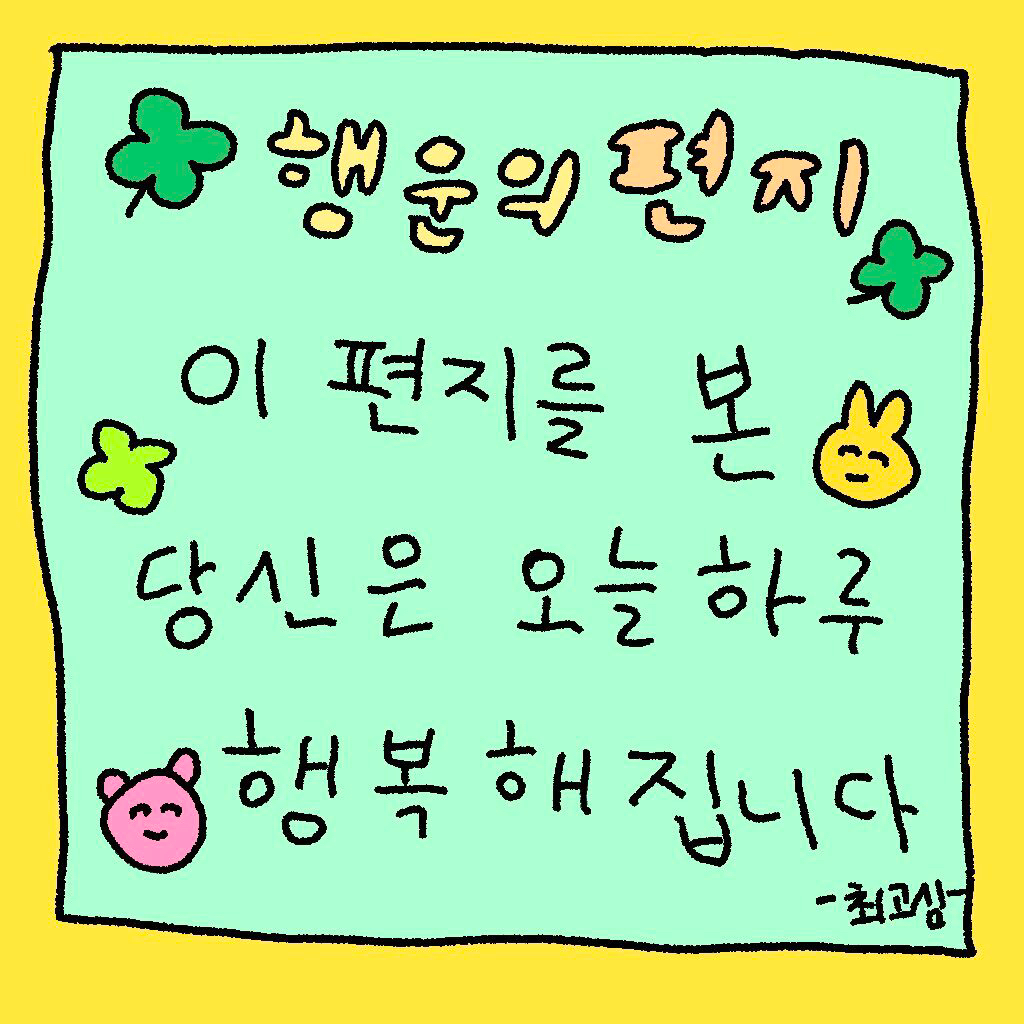 행운의 편지
이 편지를 본
당신은 오늘하루
행복해집니다
-최고심-